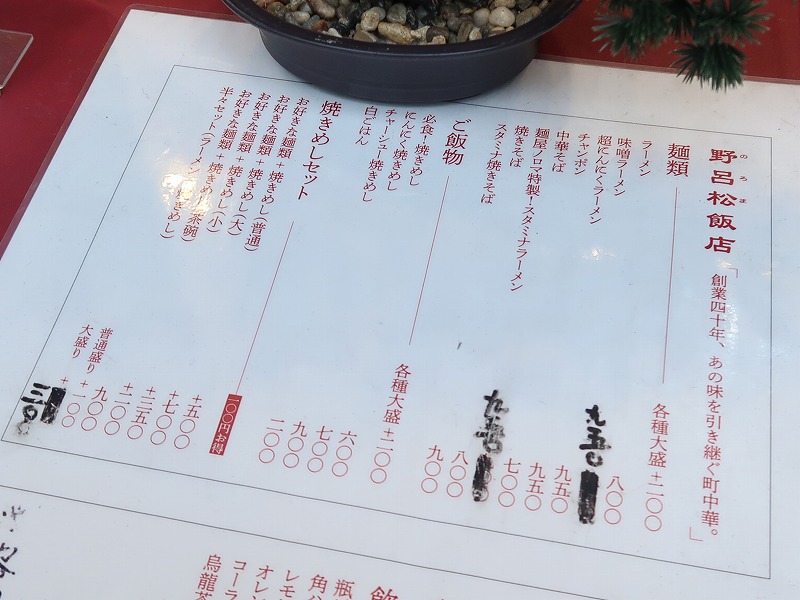 野呂松飯店
のろま
「創業四十年、あの味を引き継ぐ町中華。」
麺類 各種大盛+二〇〇
ラーメン 八〇〇
味噌ラーメン 九五〇
超にんにくラーメン 九五〇
チャンポン 九五〇
中華そば 七〇〇
麺屋ノロマ特製!スタミナラーメン 九五〇
焼きそば 八〇〇
スタミナ焼きそば 九〇〇
ご飯物 各種大盛+二〇〇
必食!焼きめし 六〇〇
にんにく焼きめし 七〇〇
チャーシュー焼きめし 九〇〇
白ごはん 二〇〇
焼きめしセット 一〇〇円お得
お好きな麺類+焼きめし(普通) +五〇〇
お好きな麺類+焼きめし(大) +七〇〇
お好きな麺類+焼きめし(小) +三五〇
お好きな麺類+焼きめし(茶碗) +二〇〇
半々セット(ラーメン 焼きめし) 普通盛り 九〇〇
大盛り +一〇〇
三〇〇
飲
瓶
角
レモ
オレン
コーラ
烏龍茶